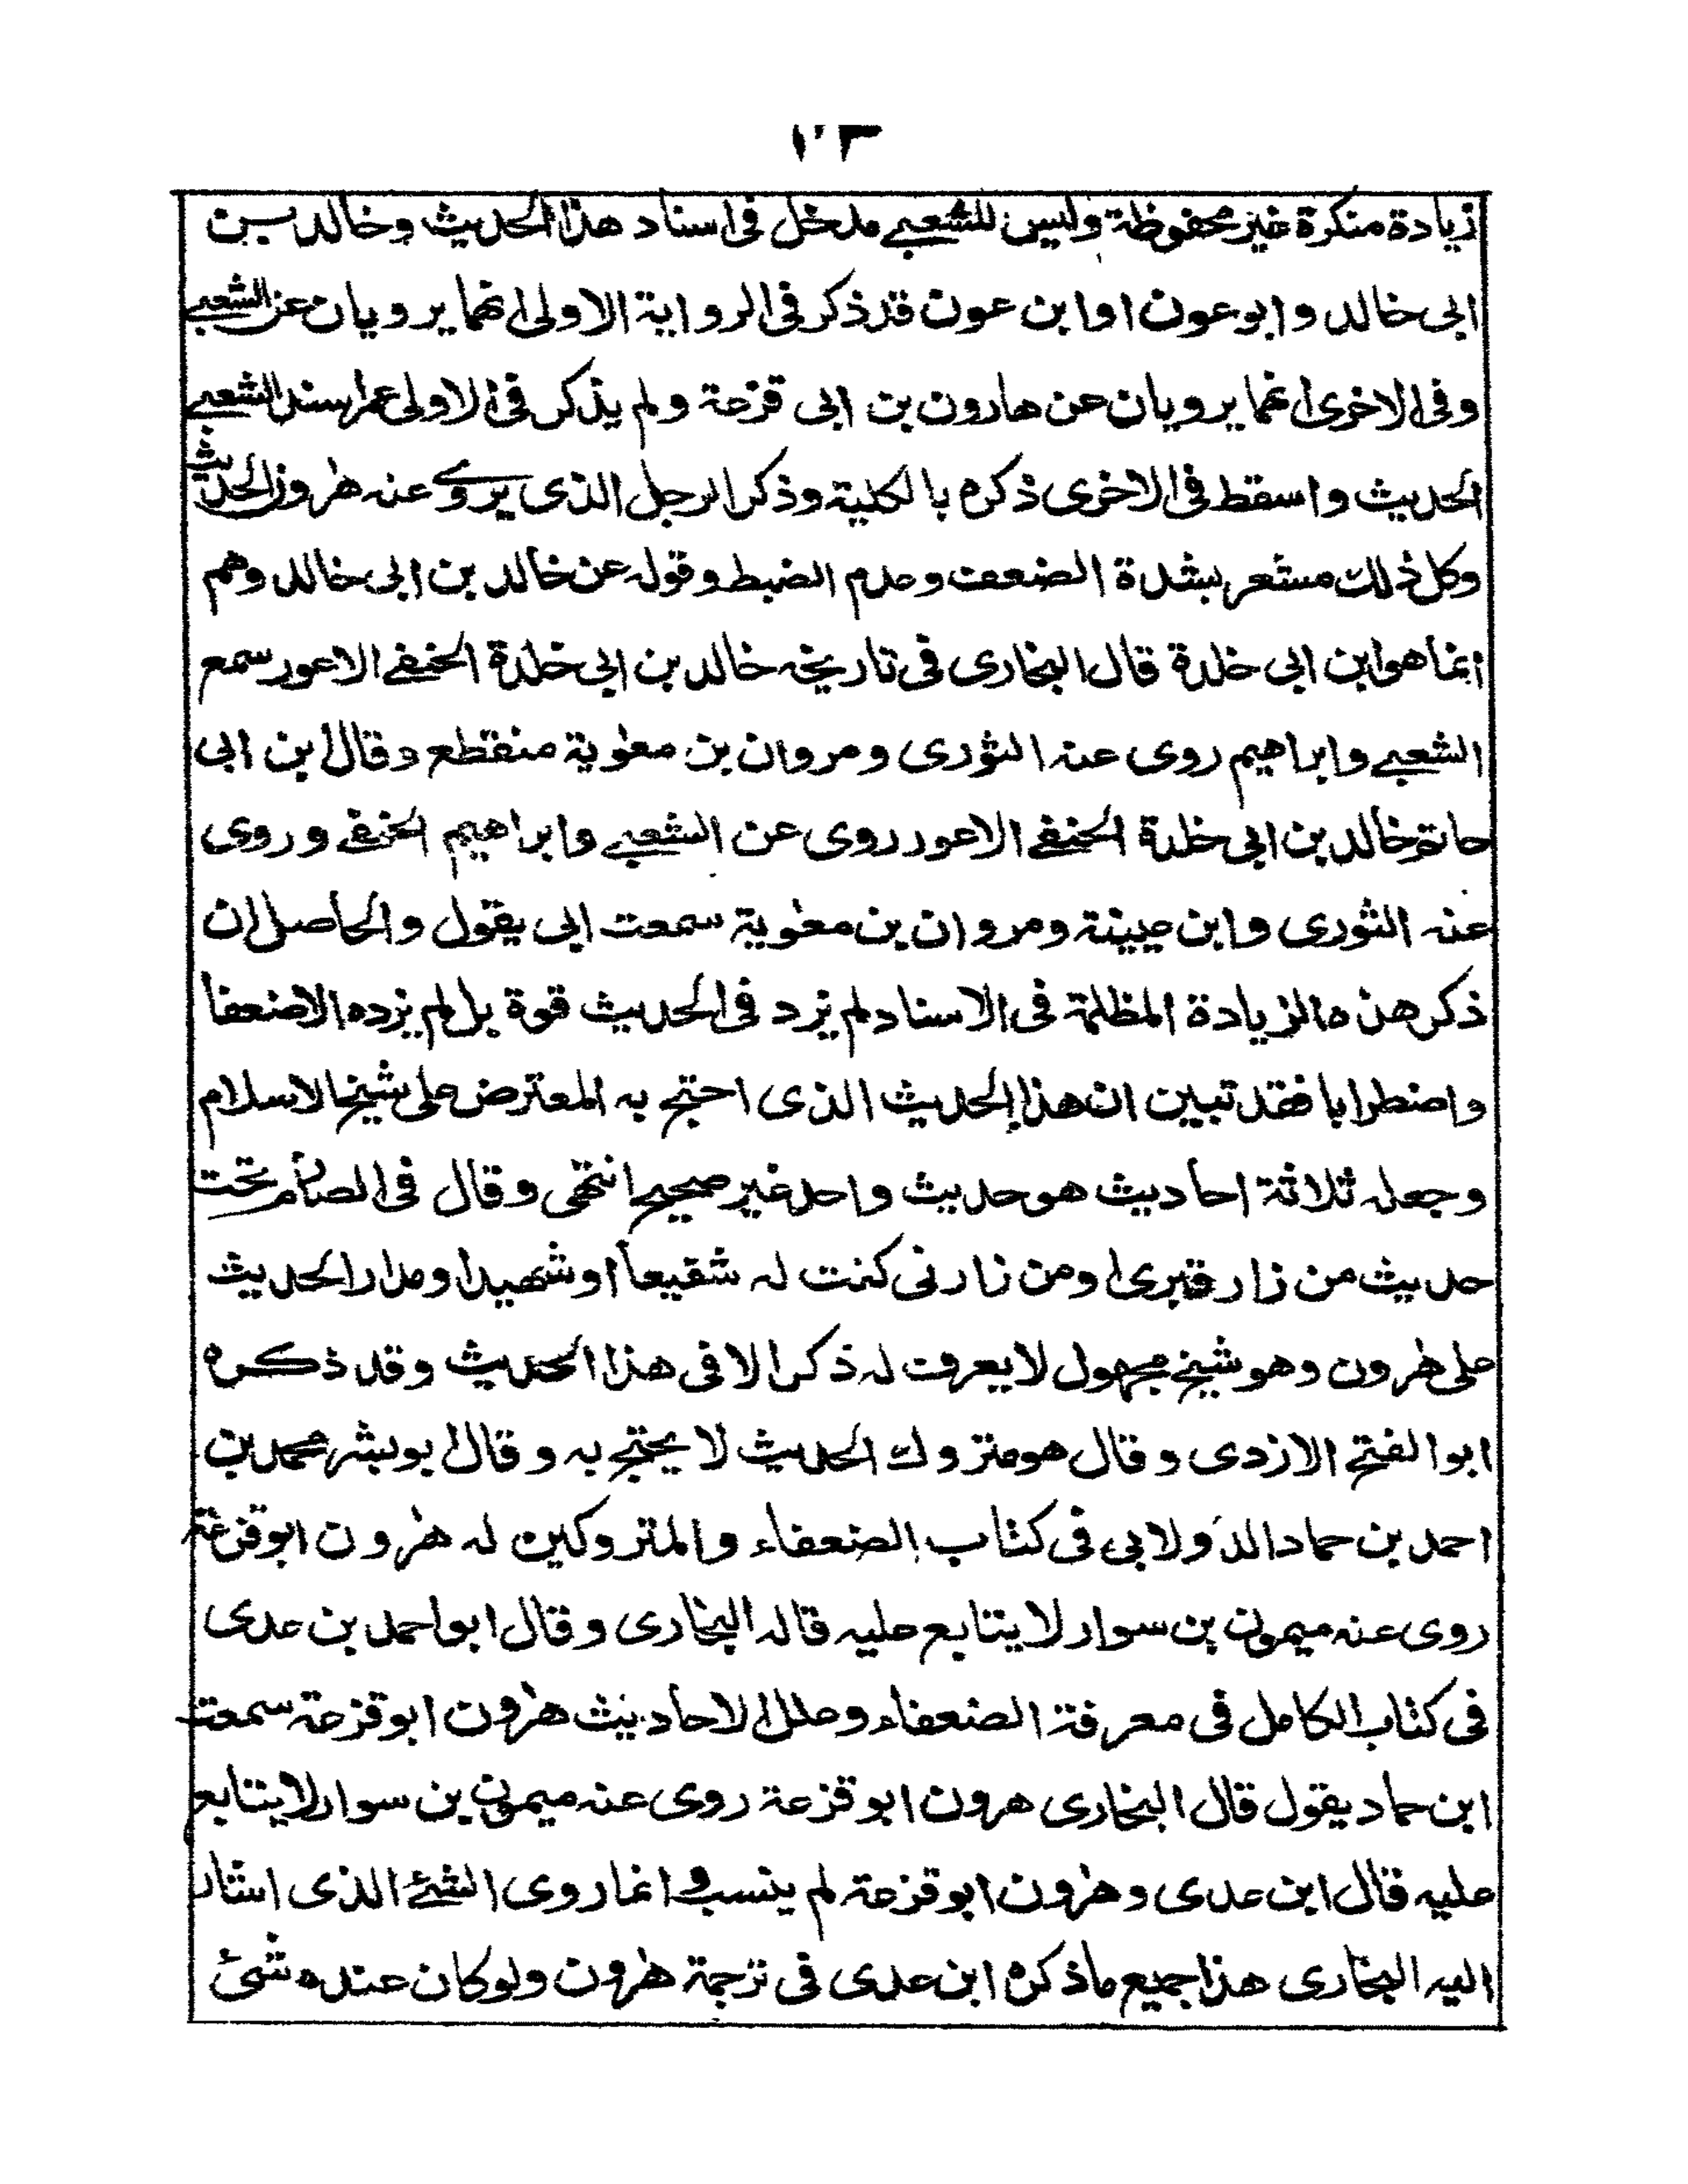 زيادة منكرة غير محفوظة وليس للشعبے مدخل فى اسناد هذا الحديث وخالد بن
ابى خالد وابو عون او ابن عون قد ذكر فى الرواية الاولى انهما يرويان عن الشعبے
وفى الاخرى انهما يرويان عن هارون بن ابى قزعة ولم يذكر فى الاولى عمن اسند الشعبے
الحديث واسقط فى الاخرى ذكره بالكلية وذكر الرجل الذى يروے عنه هٰرون الحديث
وكل ذلك مشعر بشدة الضعف وعدم الضبط وقوله عن خالد بن ابى خالد وهم
انما هو ابن ابى خلدة قال البخارى فى تاريخه خالد بن ابى خلدة الحنفے الاعور سمع
الشعبے وابراهيم روى عنه الثورى ومروان بن معٰوية منقطع وقال ابن ابى
حاتم خالد بن ابى خلدة الحنفے الاعور روى عن الشعبے وابراهيم الحنفے وروى
عنه الثورى وابن عيينة ومروان بن معٰوية سمعت ابى يقول والحاصل ان
ذكر هذه الزيادة المظلمة فى الاسناد لم يزد فى الحديث قوة بل لم يزده الا ضعفا
واضطرابا فقد تبين ان هذا الحديث الذى احتج به المعترض على شيخ الاسلام
وجعله ثلاثة احاديث هو حديث واحد غير صحيح انتهى وقال فى الصارم تحت
حديث من زار قبرى او من زارنى كنت له شفيعاً او شهيدا ومدار الحديث
على هٰرون وهو شيخ مجهول لا يعرف له ذكر الا فى هذا الحديث وقد ذكره
ابو الفتح الازدى وقال هو متروك الحديث لا يحتج به وقال ابو بشر محمد بن
احمد بن حماد الدولابى فى كتاب الضعفاء والمتروكين له هٰرون ابو قزعة
روى عنه ميمون بن سوار لا يتابع عليه قاله البخارى وقال ابو احمد بن عدى
فى كتاب الكامل فى معرفة الضعفاء وعلل الاحاديث هٰرون ابو قزعة سمعت
ابن حماد يقول قال البخارى هرون ابو قزعة روى عنه ميمون بن سوار لا يتابع
عليه قال ابن عدى وهٰرون ابو قزعة لم ينسب وانما روى الشئ الذى اشار
اليه البخارى هذا جميع ما ذكره ابن عدى فى ترجمة هٰرون ولو كان عنده شئ